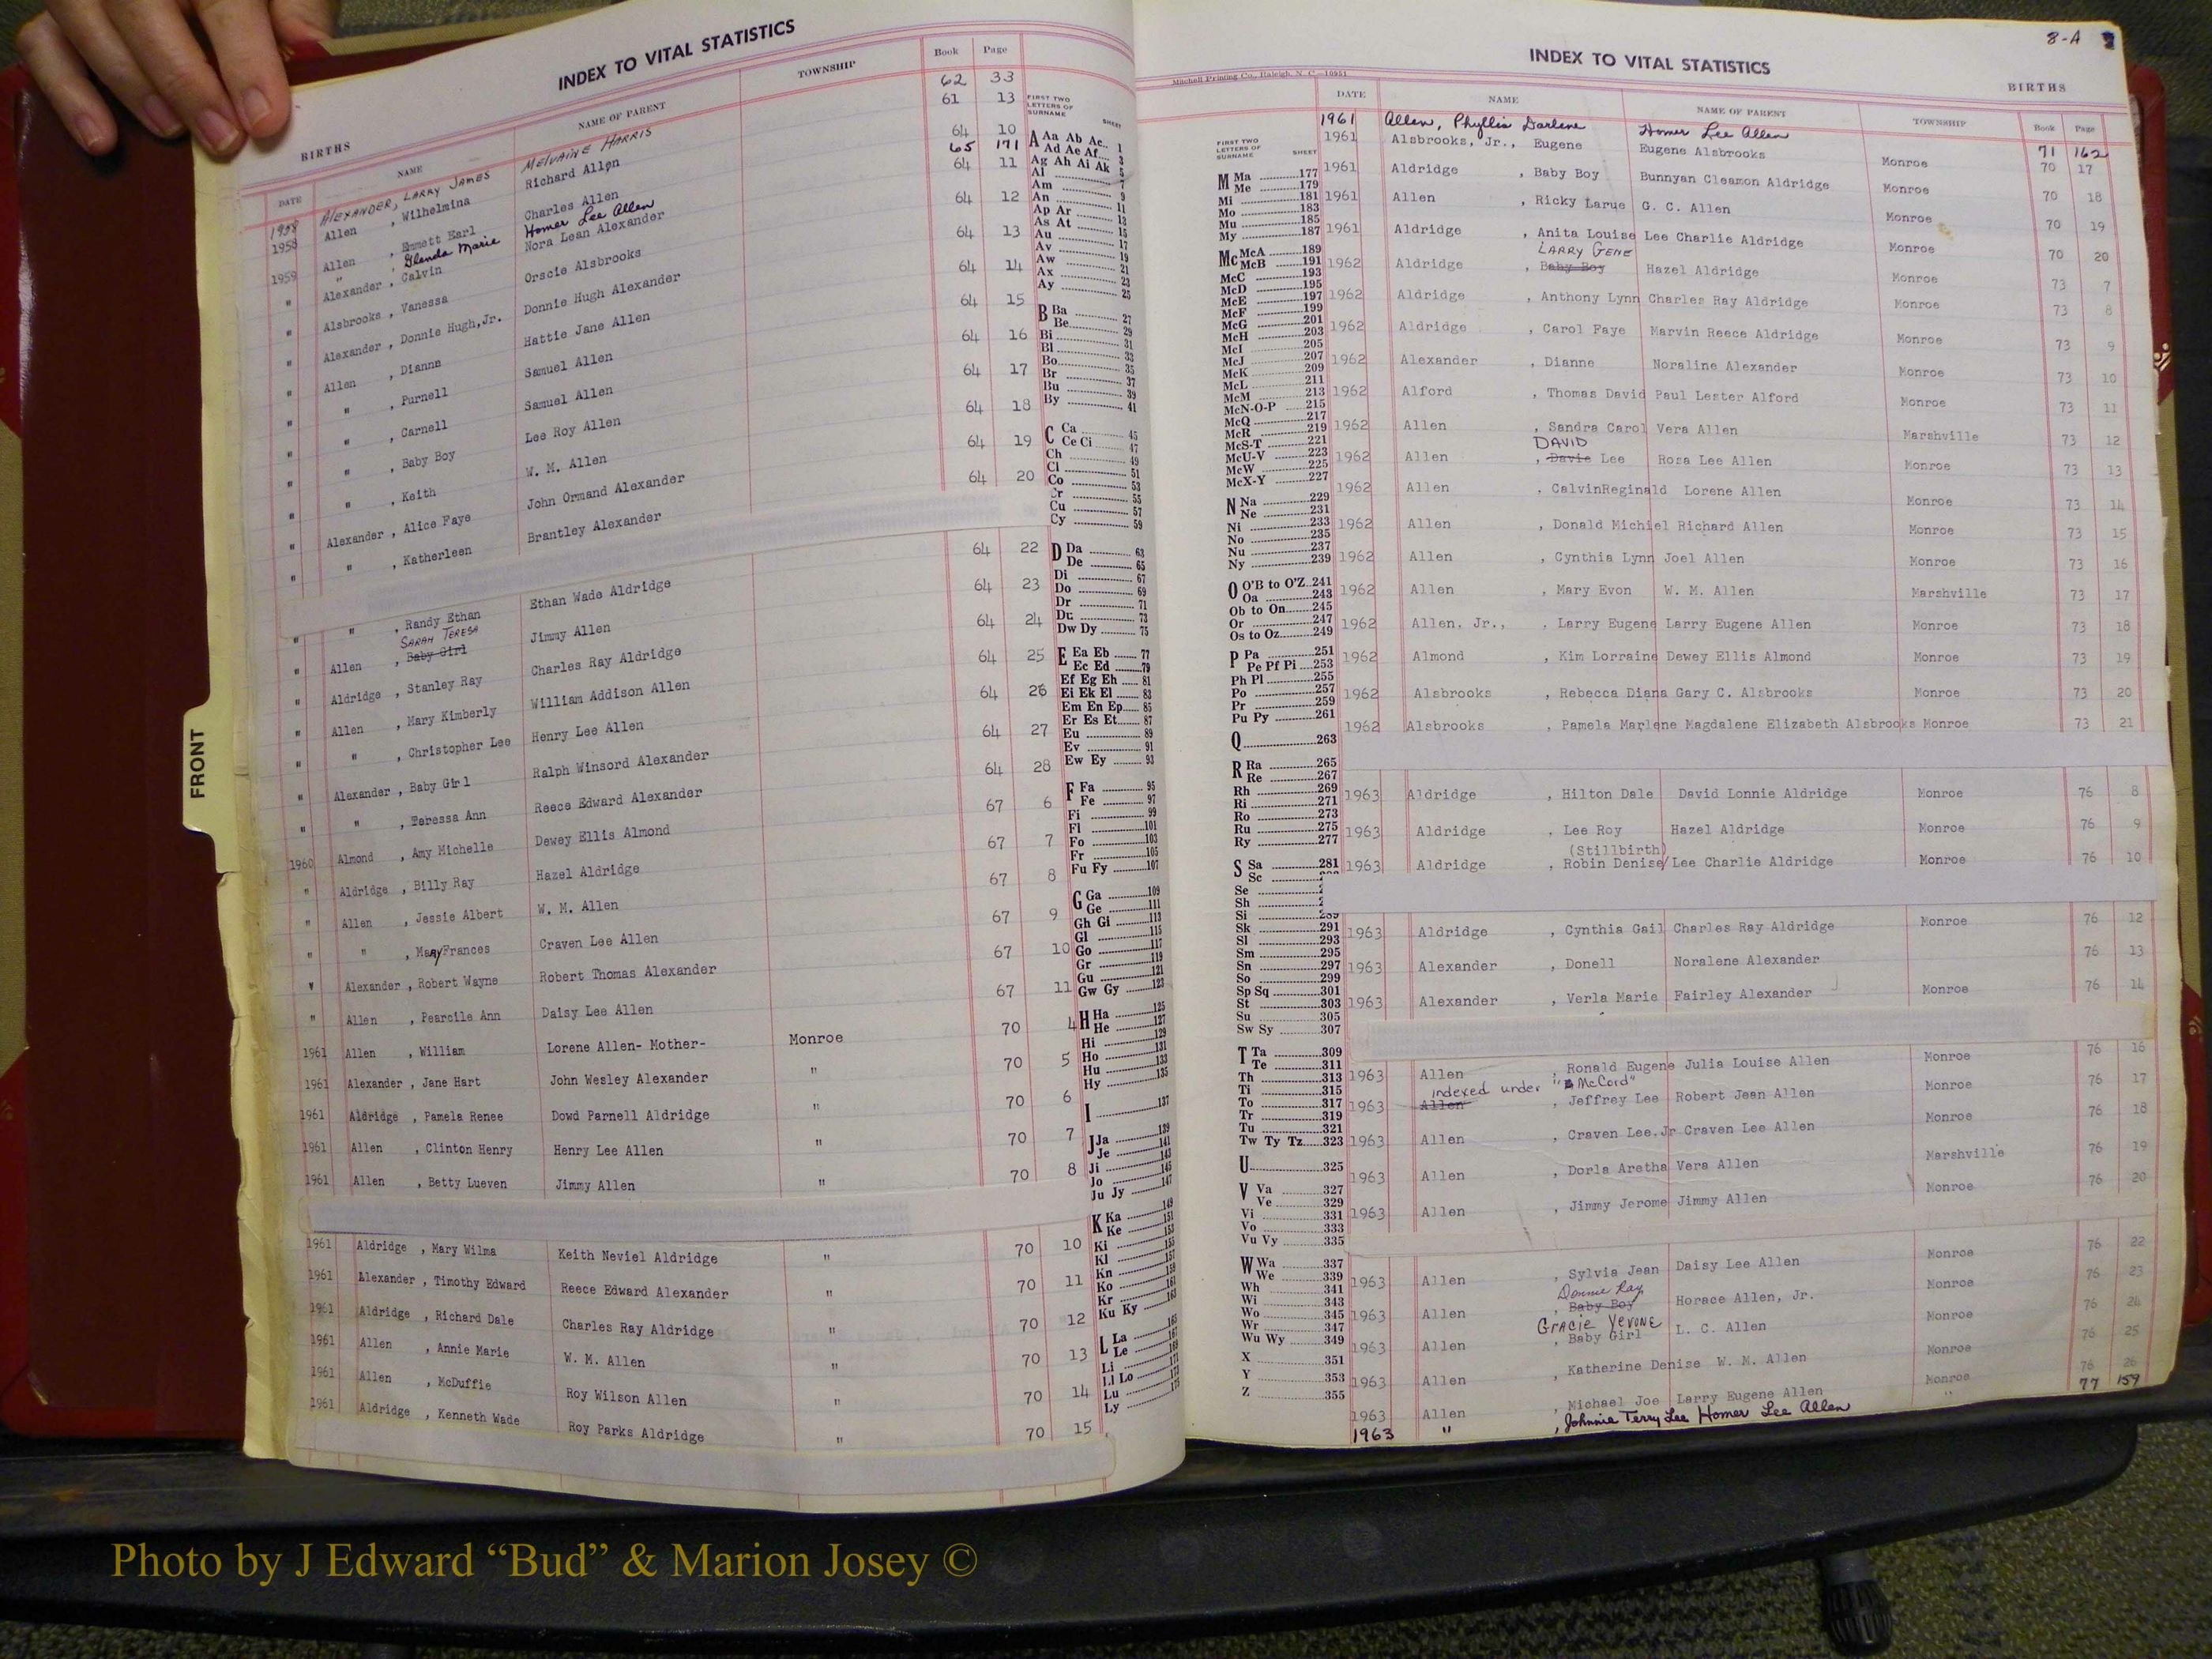 INDEX TO VITAL STATISTICS
BIRTHS
DATE NAME NAME OF PARENT TOWNSHIP Book Page
1958 ALEXANDER, LARRY JAMES MELVAINE HARRIS 62 33
1958 Allen , Wilhelmina Richard Allen 61 13
Allen , Emmett Earl Charles Allen 64 10
" " Glenda Marie Homer Lee Allen 65 171
1959 Alexander , Calvin Nora Lean Alexander 64 11
" Alsbrooks , Vanessa Orscie Alsbrooks 64 12
" Alexander , Donnie Hugh,Jr. Donnie Hugh Alexander 64 13
" Allen , Dianna Hattie Jane Allen 64 14
" " , Purnell Samuel Allen 64 15
" " , Carnell Samuel Allen 64 16
" " , Baby Boy Lee Roy Allen 64 17
" " , Keith W. M. Allen 64 18
" Alexander , Alice Faye John Ormand Alexander 64 19
" " , Katherleen Brantley Alexander 64 20
" " , Randy Ethan Ethan Wade Aldridge 64 22
SARAH TERESA
" Allen , Baby Girl Jimmy Allen 64 23
" Aldridge , Stanley Ray Charles Ray Aldridge 64 24
" Allen , Mary Kimberly William Addison Allen 64 25
" " , Christopher Lee Henry Lee Allen 64 26
" Alexander , Baby Girl Ralph Winsord Alexander 64 27
" " , Teressa Ann Reece Edward Alexander 64 28
1960 Almond , Amy Michelle Dewey Ellis Almond 67 6
" Aldridge , Billy Ray Hazel Aldridge 67 7
" Allen , Jessie Albert W. M. Allen 67 8
" " , Mary Frances Craven Lee Allen 67 9
" Alexander , Robert Wayne Robert Thomas Alexander 67 10
" Allen , Pearcile Ann Daisy Lee Allen 67 11
1961 Allen , William Lorene Allen- Mother- Monroe 70 4
1961 Alexander , Jane Hart John Wesley Alexander " 70 5
1961 Aldridge , Pamela Renee Dowd Parnell Aldridge " 70 6
1961 Allen , Clinton Henry Henry Lee Allen " 70 7
1961 Allen , Betty Lueven Jimmy Allen " 70 8
1961 Aldridge , Mary Wilma Keith Neviel Aldridge " 70 10
1961 Alexander , Timothy Edward Reece Edward Alexander " 70 11
1961 Aldridge , Richard Dale Charles Ray Aldridge " 70 12
1961 Allen , Annie Marie W. M. Allen " 70 13
1961 Allen , McDuffie Roy Wilson Allen " 70 14
1961 Aldridge , Kenneth Wade Roy Parks Aldridge " 70 15
FRONT
FIRST TWO
LETTERS OF
SURNAME SHEET
A Aa Ab Ac.. 1
Ad Ae Af.... 3
Ag Ah Ai Ak 5
Al 7
Am 9
An 11
Ap Ar 13
As At 15
Au 17
Av 19
Aw 21
Ax 23
Ay 25
B Ba 27
Be 29
Bi 31
Bl 33
Bo 35
Br 37
Bu 39
By 41
C Ca 45
Ce Ci 47
Ch 49
Cl 51
Co 53
Cr 55
Cu 57
Cy 59
D Da 63
De 65
Di 67
Do 69
Dr 71
Du 73
Dw Dy 75
E Ea Eb 77
Ec Ed 79
Ef Eg Eh 81
Ei Ek El 83
Em En Ep 85
Er Es Et 87
Eu 89
Ev 91
Ew Ey 93
F Fa 95
Fe 97
Fi 99
Fl 101
Fo 103
Fr 105
Fu Fy 107
G Ga 109
Ge 111
Gh Gi 113
Gl 115
Go 117
Gr 119
Gu 121
Gw Gy 123
H Ha 125
He 127
Hi 129
Ho 131
Hu 133
Hy 135
I 137
J Ja 139
Je 141
Ji 143
Jo 145
Ju Jy 147
K Ka 149
Ke 151
Ki 153
Kl 157
Kn 159
Ko 161
Kr
Ku Ky 163
L La 165
Le 167
Li
Ll Lo
Lu
Ly
8-A
INDEX TO VITAL STATISTICS
Mitchell Printing Co., Raleigh, N. C.—10951
BIRTHS
DATE NAME NAME OF PARENT TOWNSHIP Book Page
1961 Allen, Phyllis Darlene Homer Lee Allen 71 162
1961 Alsbrooks, Jr., Eugene Eugene Alsbrooks Monroe 70 17
1961 Aldridge , Baby Boy Bunnyan Cleamon Aldridge Monroe 70 18
1961 Allen , Ricky Larue G. C. Allen Monroe 70 19
1961 Aldridge , Anita Louise Lee Charlie Aldridge Monroe 70 20
LARRY GENE
1962 Aldridge , Baby Boy Hazel Aldridge Monroe 73 7
1962 Aldridge , Anthony Lynn Charles Ray Aldridge Monroe 73 8
1962 Aldridge , Carol Faye Marvin Reece Aldridge Monroe 73 9
1962 Alexander , Dianne Noraline Alexander Monroe 73 10
1962 Alford , Thomas David Paul Lester Alford Monroe 73 11
1962 Allen , Sandra Carol Vera Allen Marshville 73 12
DAVID
1962 Allen , Davis Lee Rosa Lee Allen Monroe 73 13
1962 Allen , CalvinReginald Lorene Allen Monroe 73 14
1962 Allen , Donald Michiel Richard Allen Monroe 73 15
1962 Allen , Cynthia Lynn Joel Allen Monroe 73 16
1962 Allen , Mary Evon W. M. Allen Marshville 73 17
1962 Allen, Jr., , Larry Eugene Larry Eugene Allen Monroe 73 18
1962 Almond , Kim Lorraine Dewey Ellis Almond Monroe 73 19
1962 Alsbrooks , Rebecca Diana Gary C. Alsbrooks Monroe 73 20
1962 Alsbrooks , Pamela Marlene Magdalene Elizabeth Alsbrooks Monroe 73 21
1963 Aldridge , Hilton Dale David Lonnie Aldridge Monroe 76 8
1963 Aldridge , Lee Roy Hazel Aldridge Monroe 76 9
(Stillbirth)
1963 Aldridge , Robin Denise/Lee Charlie Aldridge Monroe 76 10
1963 Aldridge , Cynthia Gail Charles Ray Aldridge Monroe 76 12
1963 Alexander , Donell Noralene Alexander 76 13
1963 Alexander , Verla Marie Fairley Alexander Monroe 76 14
1963 Allen , Ronald Eugene Julia Louise Allen Monroe 76 16
indexed under "McCord"
1963 Allen , Jeffrey Lee Robert Jean Allen Monroe 76 17
1963 Allen , Craven Lee,Jr Craven Lee Allen Monroe 76 18
1963 Allen , Dorla Aretha Vera Allen Marshville 76 19
1963 Allen , Jimmy Jerome Jimmy Allen Monroe 76 20
1963 Allen , Sylvia Jean Daisy Lee Allen Monroe 76 22
Donnie Ray
1963 Allen , Baby Boy Horace Allen, Jr. Monroe 76 23
GRACIE YEVONE
1963 Allen , Baby Girl L. C. Allen Monroe 76 24
1963 Allen , Katherine Denise W. M. Allen Monroe 76 25
1963 Allen , Michael Joe Larry Eugene Allen Monroe 76 26
1963 " , Johnnie Terry Lee Homer Lee Allen " 77 159
FIRST TWO
LETTERS OF
SURNAME SHEET
M Ma 177
Me 179
Mi 181
Mo 183
Mu 185
My 187
Mc McA 189
McB 191
McC 193
McD 195
McE 197
McF 199
McG 201
McH 203
McI 205
McJ 207
McK 209
McL 211
McM 213
McN-O-P 215
McQ 217
McR 219
McS-T 221
McU-V 223
McW 225
McX-Y 227
N Na 229
Ne 231
Ni 233
No 235
Nu 237
Ny 239
O O'B to O'Z 241
Oa 243
Ob to On 245
Or 247
Os to Oz 249
P Pa 251
Pe Pf Pi 253
Ph Pl 255
Po 257
Pr 259
Pu Py 261
Q 263
R Ra 265
Re 267
Rh 269
Ri 271
Ro 273
Ru 275
Ry 277
S Sa 281
Sc
Se
Sh
Si 289
Sk 291
Sl 293
Sm 295
Sn 297
So 299
Sp Sq 301
St 303
Su 305
Sw Sy 307
T Ta 309
Te 311
Th 313
Ti 315
To 317
Tr 319
Tu 321
Tw Ty Tz 323
U 325
V Va 327
Ve 329
Vi 331
Vo 333
Vu Vy 335
W Wa 337
We 339
Wh 341
Wi 343
Wo 345
Wr 347
Wu Wy 349
X 351
Y 353
Z 355
Photo by J Edward “Bud” & Marion Josey ©